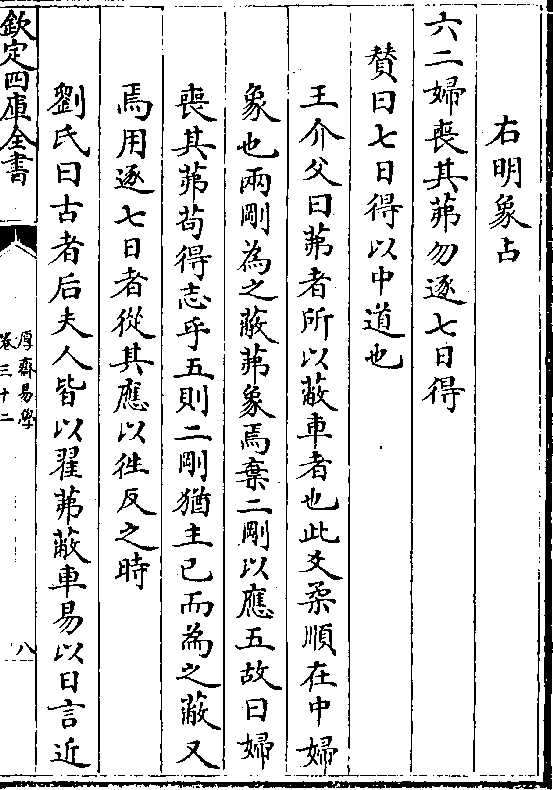 右明象占
六二婦喪其茀勿逐七日得
賛曰七日得以中道也
王介父曰茀者所以蔽車者也此爻柔順在中婦
象也兩剛為之蔽茀象焉棄二剛以應五故曰婦
喪其茀苟得志乎五則二剛猶主已而為之蔽又
焉用逐七日者從其應以徃反之時
劉氏曰古者后夫人皆以翟茀蔽車易以日言近
欽定四庫全書
厚齋易學
卷三十二
八